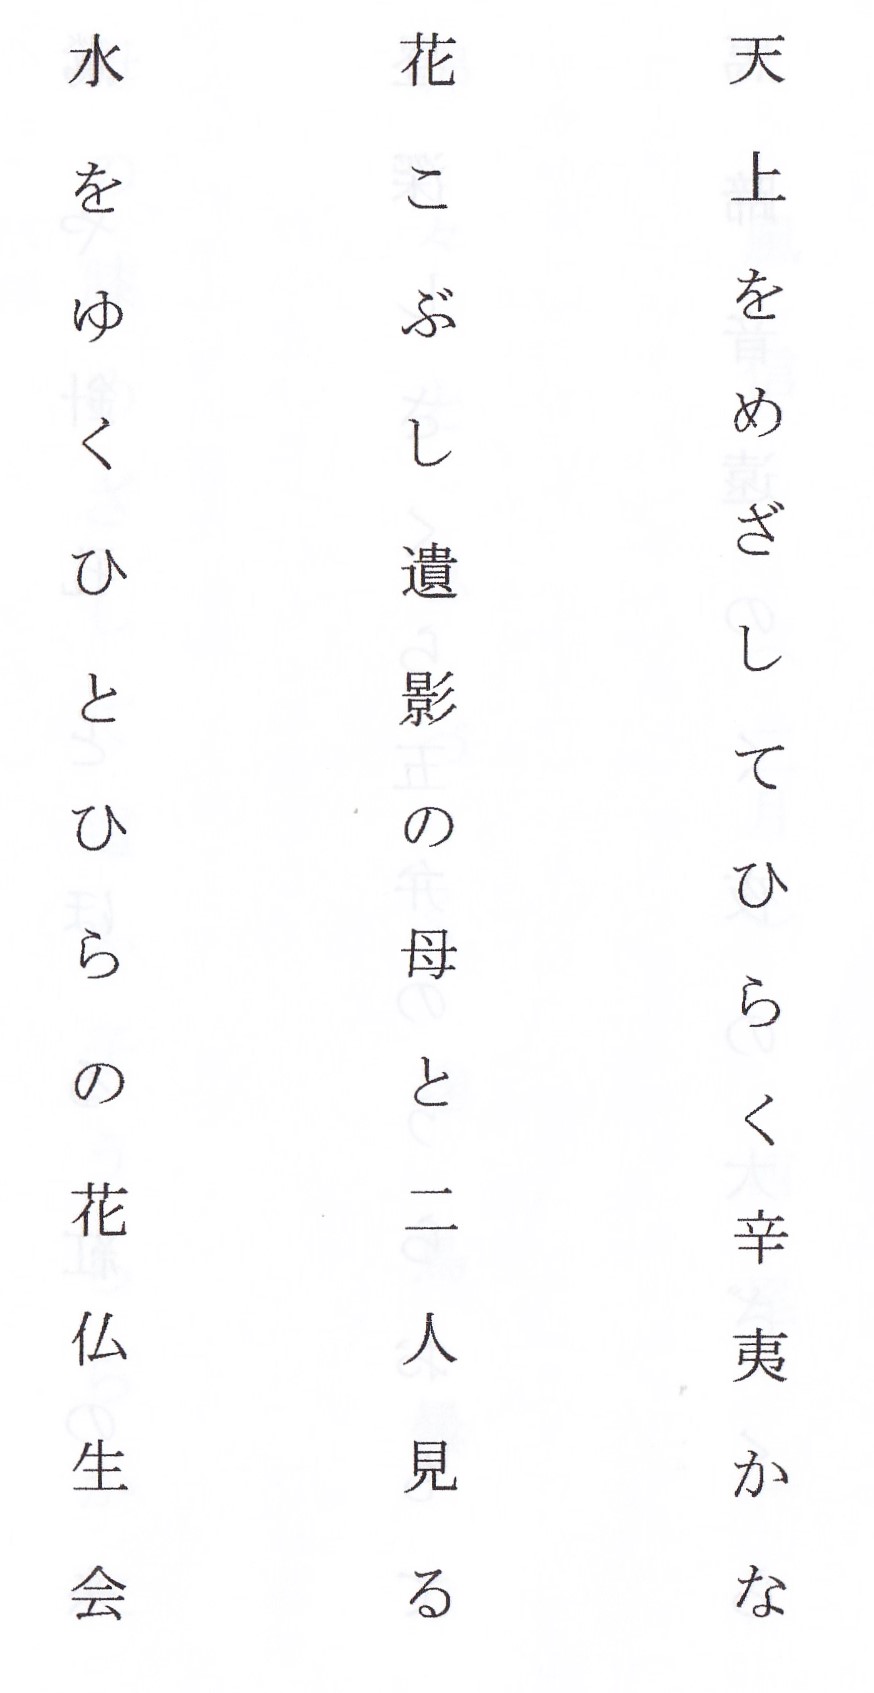 天上をめざしてひらく辛夷かな
花こぶし遺影の母と二人見る
水をゆくひとひらの花仏生会